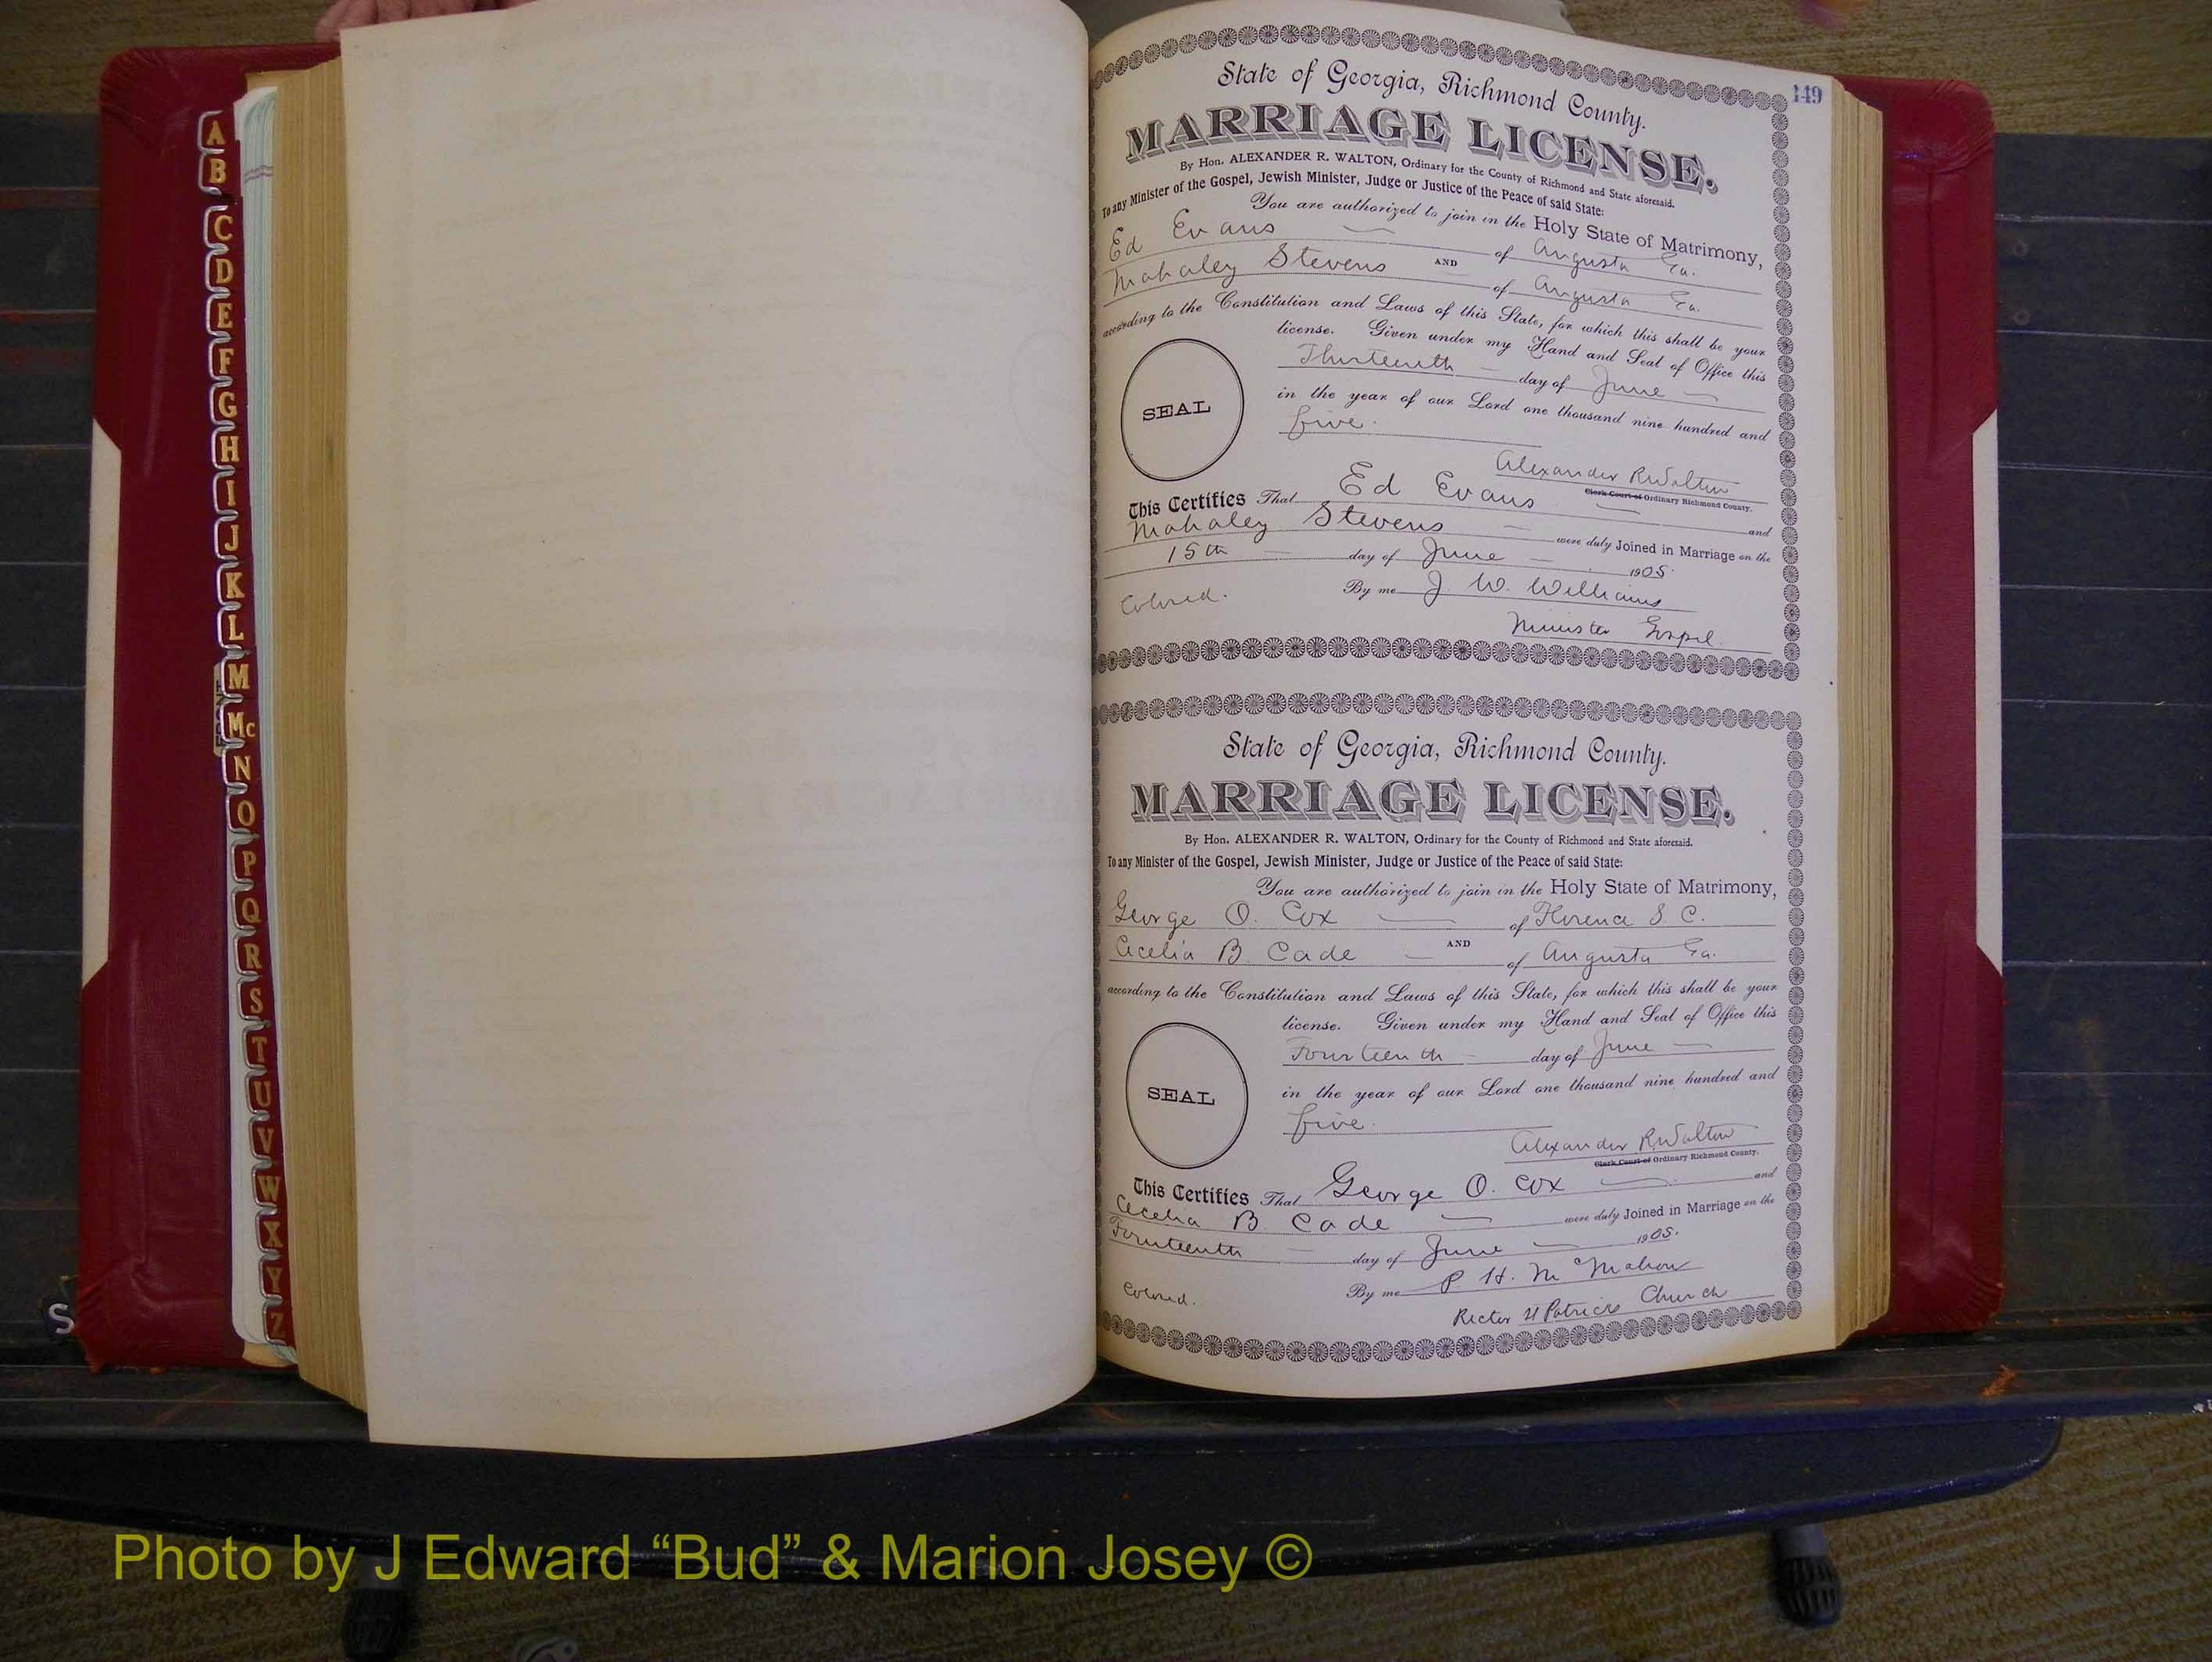 A
B
C
D
E
F
G
H
I
J
K
L
M
Mc
N
O
P
Q
R
S
T
U
V
W
X
Y
Z
S
149
State of Georgia, Richmond County.
MARRIAGE LICENSE.
By Hon. ALEXANDER R. WALTON, Ordinary for the County of Richmond and State aforesaid.
To any Minister of the Gospel, Jewish Minister, Judge or Justice of the Peace of said State:
You are authorized to join in the Holy State of Matrimony,
Ed Evans of Augusta Ga.
AND
Mahaley Stevens of Augusta Ga.
according to the Constitution and Laws of this State, for which this shall be your
license. Given under my Hand and Seal of Office this
Thirteenth day of June
in the year of our Lord one thousand nine hundred and
five.
SEAL
Alexander R Walton
Clerk Court of Ordinary Richmond County.
This Certifies That Ed Evans and
Mahaley Stevens were duly Joined in Marriage on the
15th day of June 1905.
Colored. By me J. W. Williams
Minister Gospel.
State of Georgia, Richmond County.
MARRIAGE LICENSE.
By Hon. ALEXANDER R. WALTON, Ordinary for the County of Richmond and State aforesaid.
To any Minister of the Gospel, Jewish Minister, Judge or Justice of the Peace of said State:
You are authorized to join in the Holy State of Matrimony,
George O. Cox of Florence S. C.
AND
Cecelia B. Cade of Augusta Ga.
according to the Constitution and Laws of this State, for which this shall be your
license. Given under my Hand and Seal of Office this
Fourteenth day of June
in the year of our Lord one thousand nine hundred and
five.
SEAL
Alexander R Walton
Clerk Court of Ordinary Richmond County.
This Certifies That George O. Cox and
Cecelia B. Cade were duly Joined in Marriage on the
Fourteenth day of June 1905.
Colored. By me P. H. McMahon
Rector St Patricks Church
Photo by J Edward “Bud” & Marion Josey ©